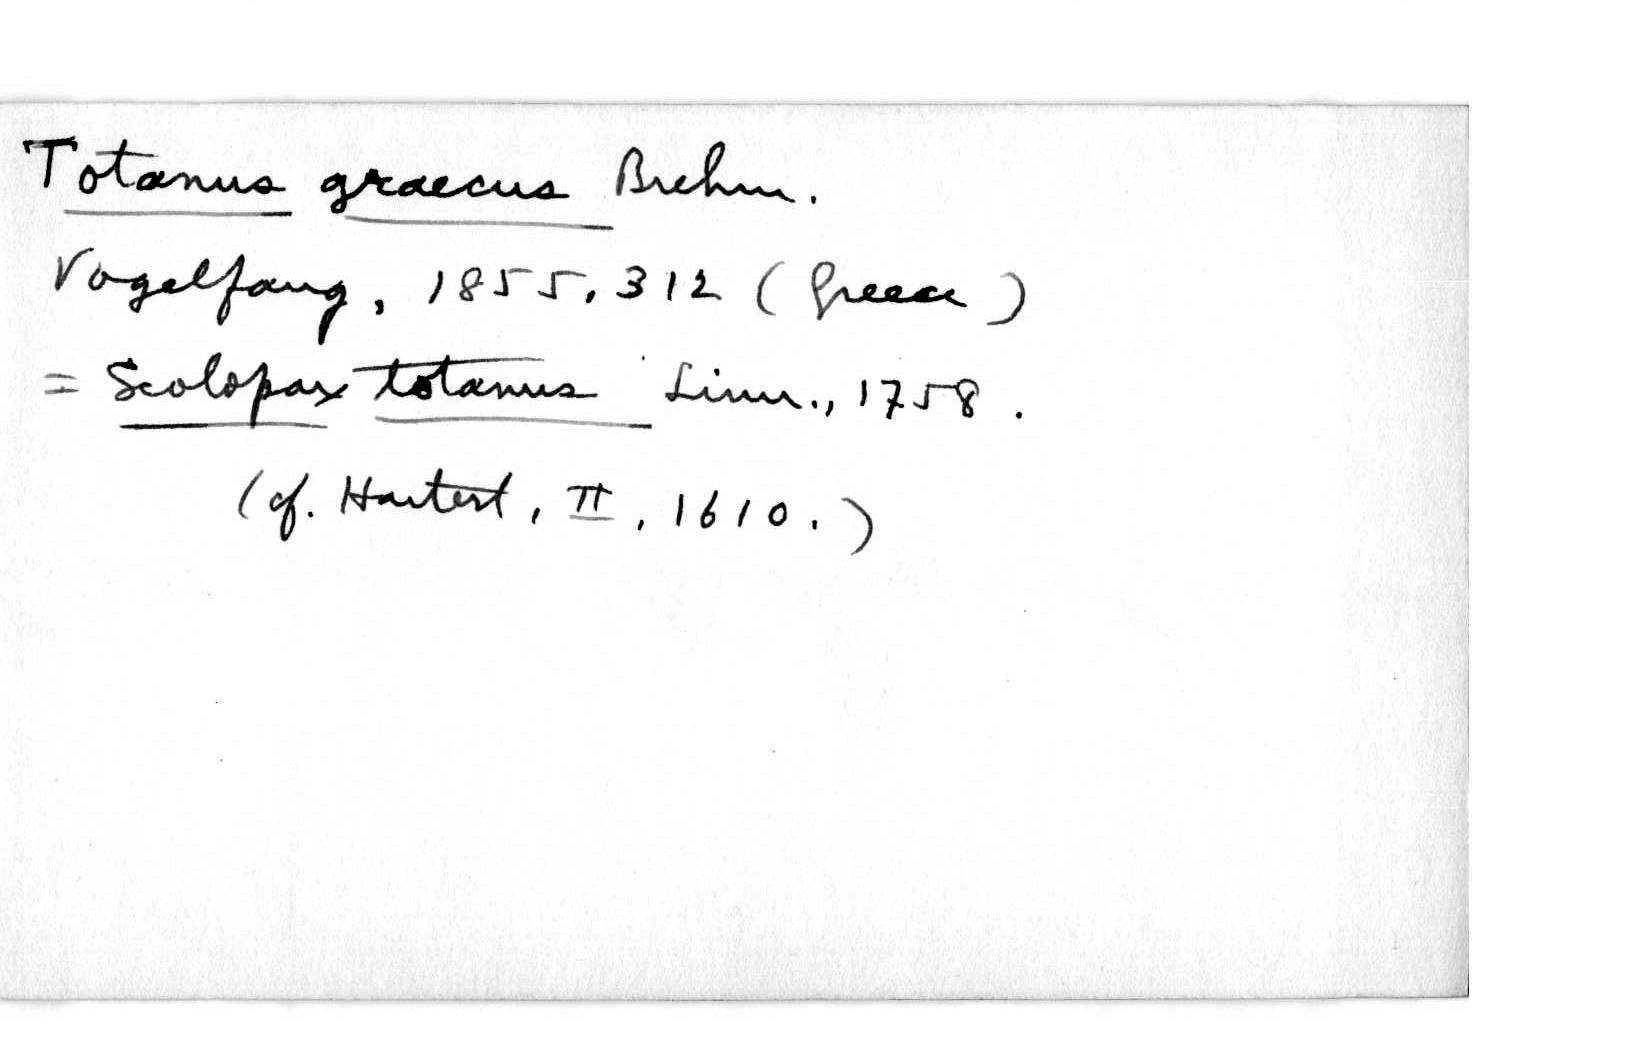 Totanus graecus Brehm.
Vogelfang, 1855, 312 (Greece)
= Scolopax totanus Linn., 1758.
(cf. Hartert, II, 1610.)